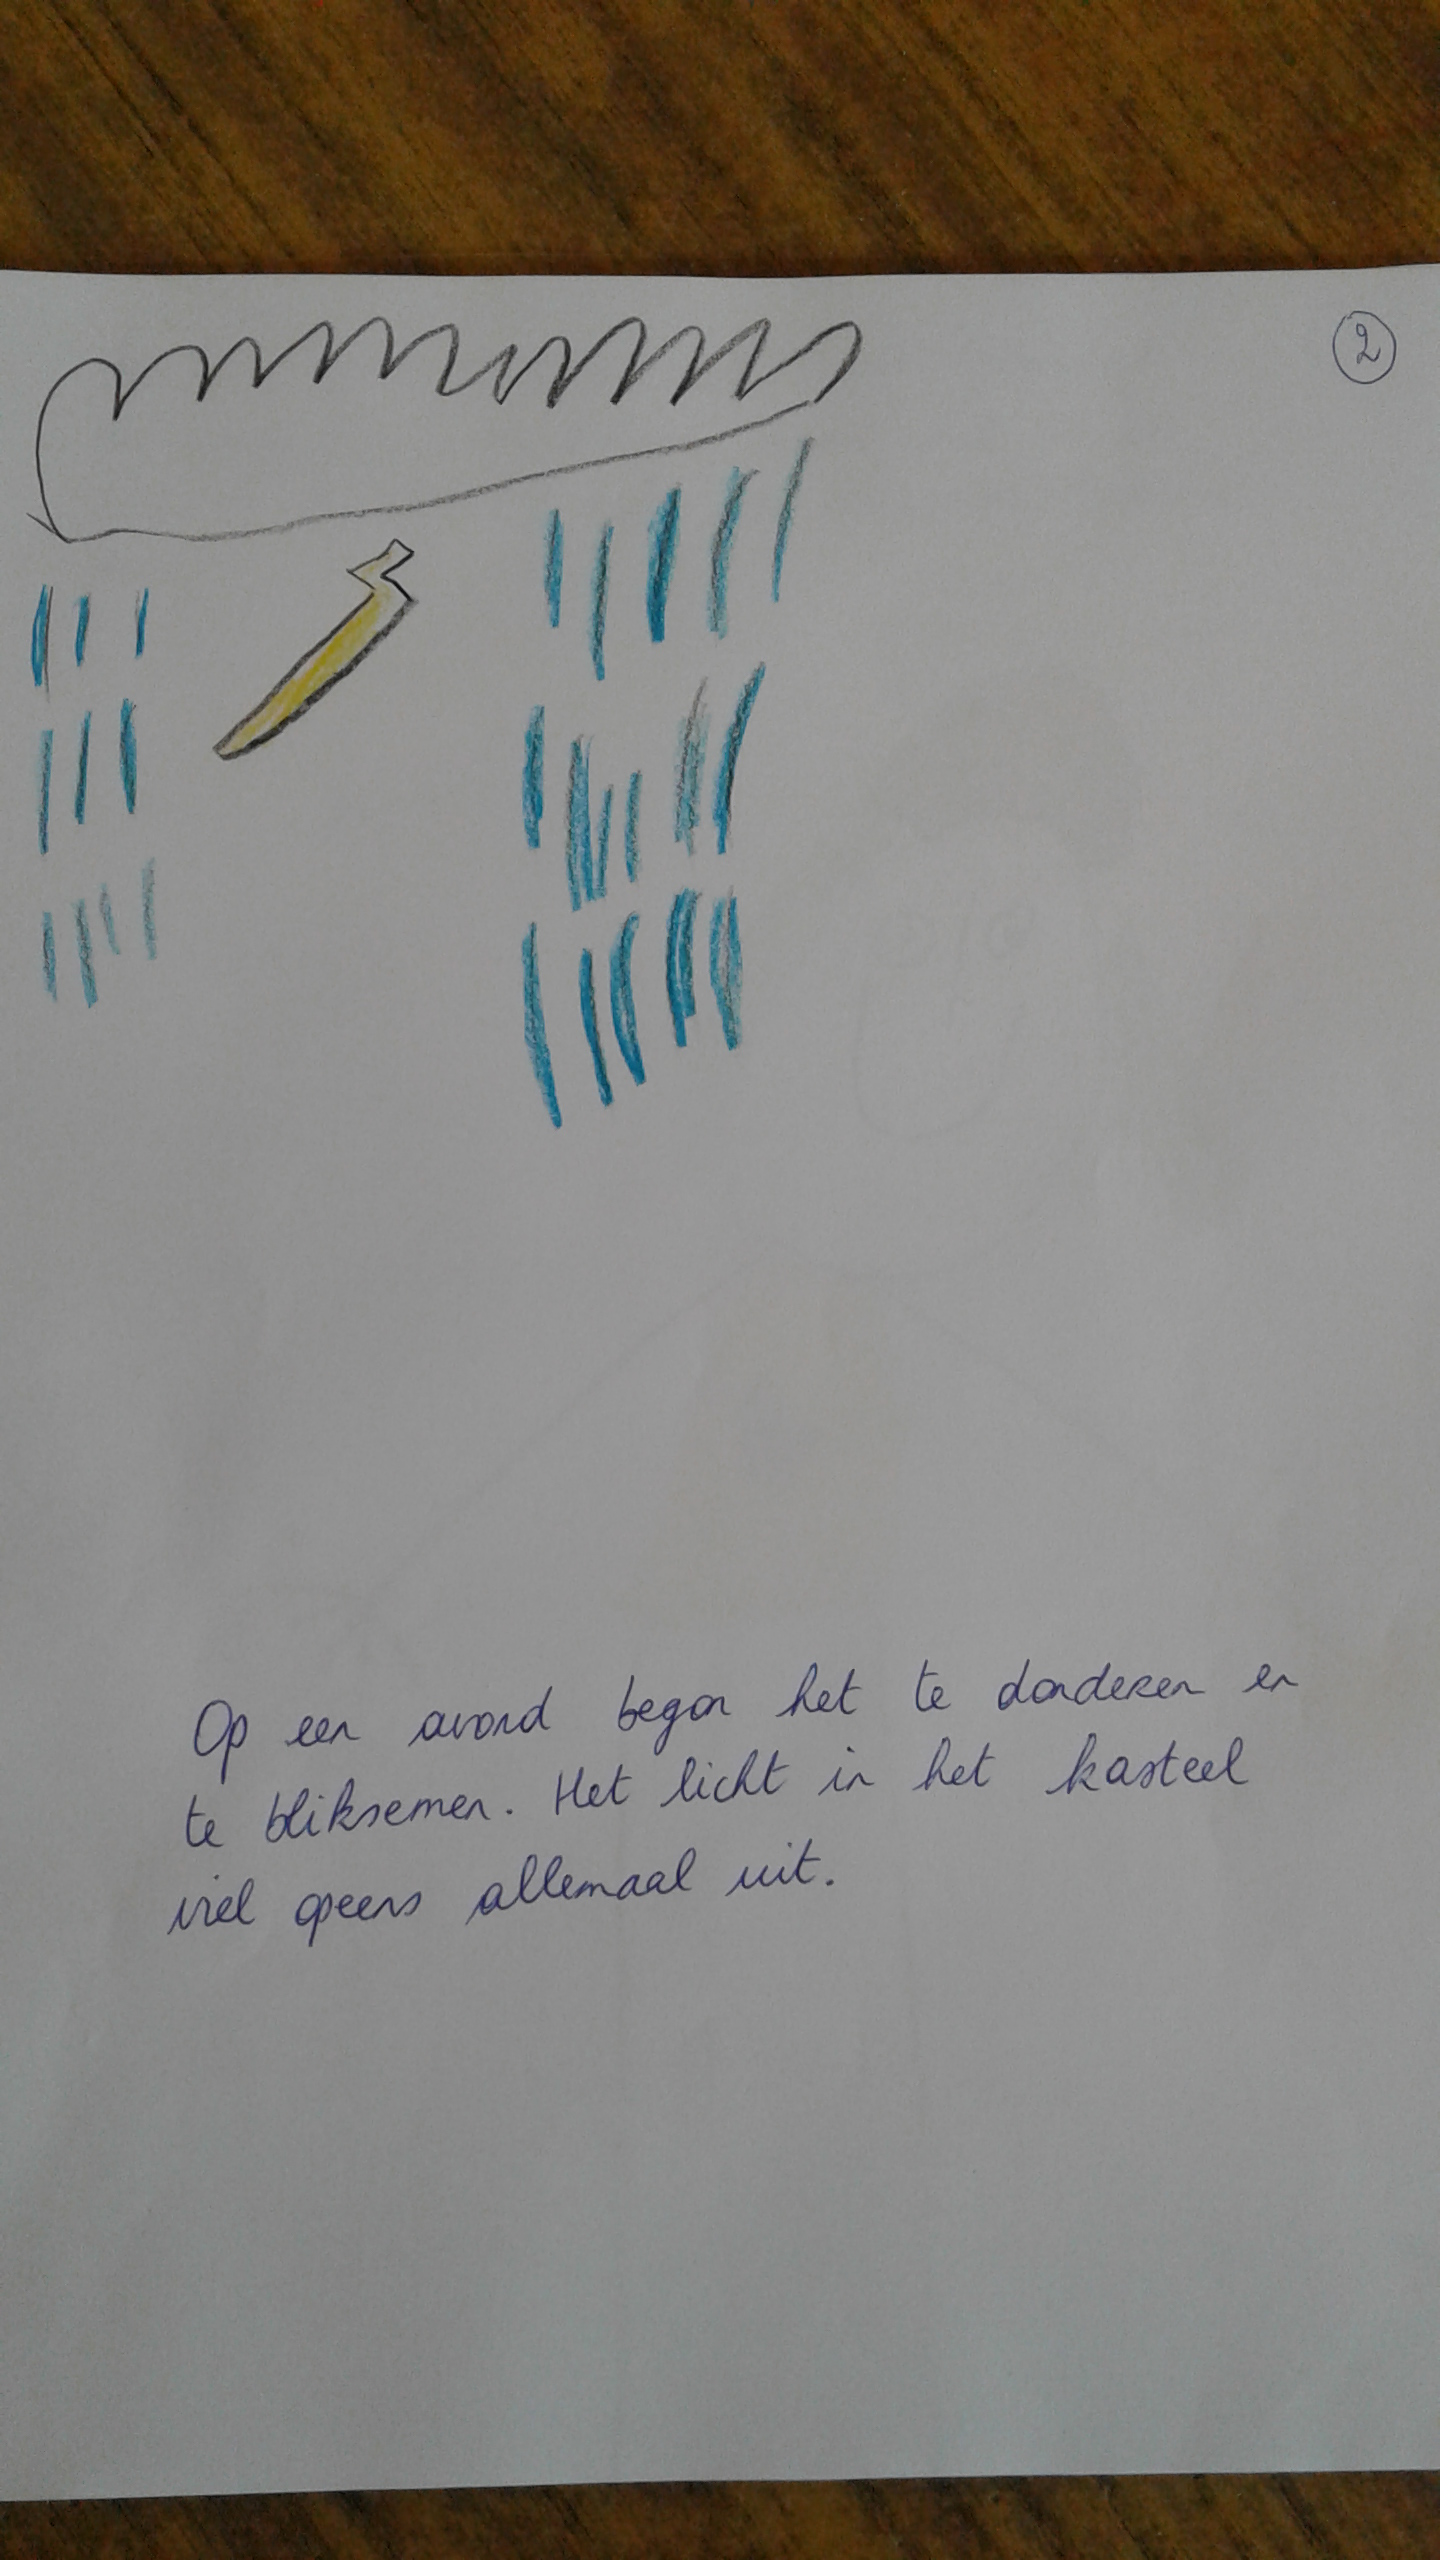 2
Op een avond begon het te donderen en
te bliksemen. Het licht in het kasteel
viel opeens allemaal uit.